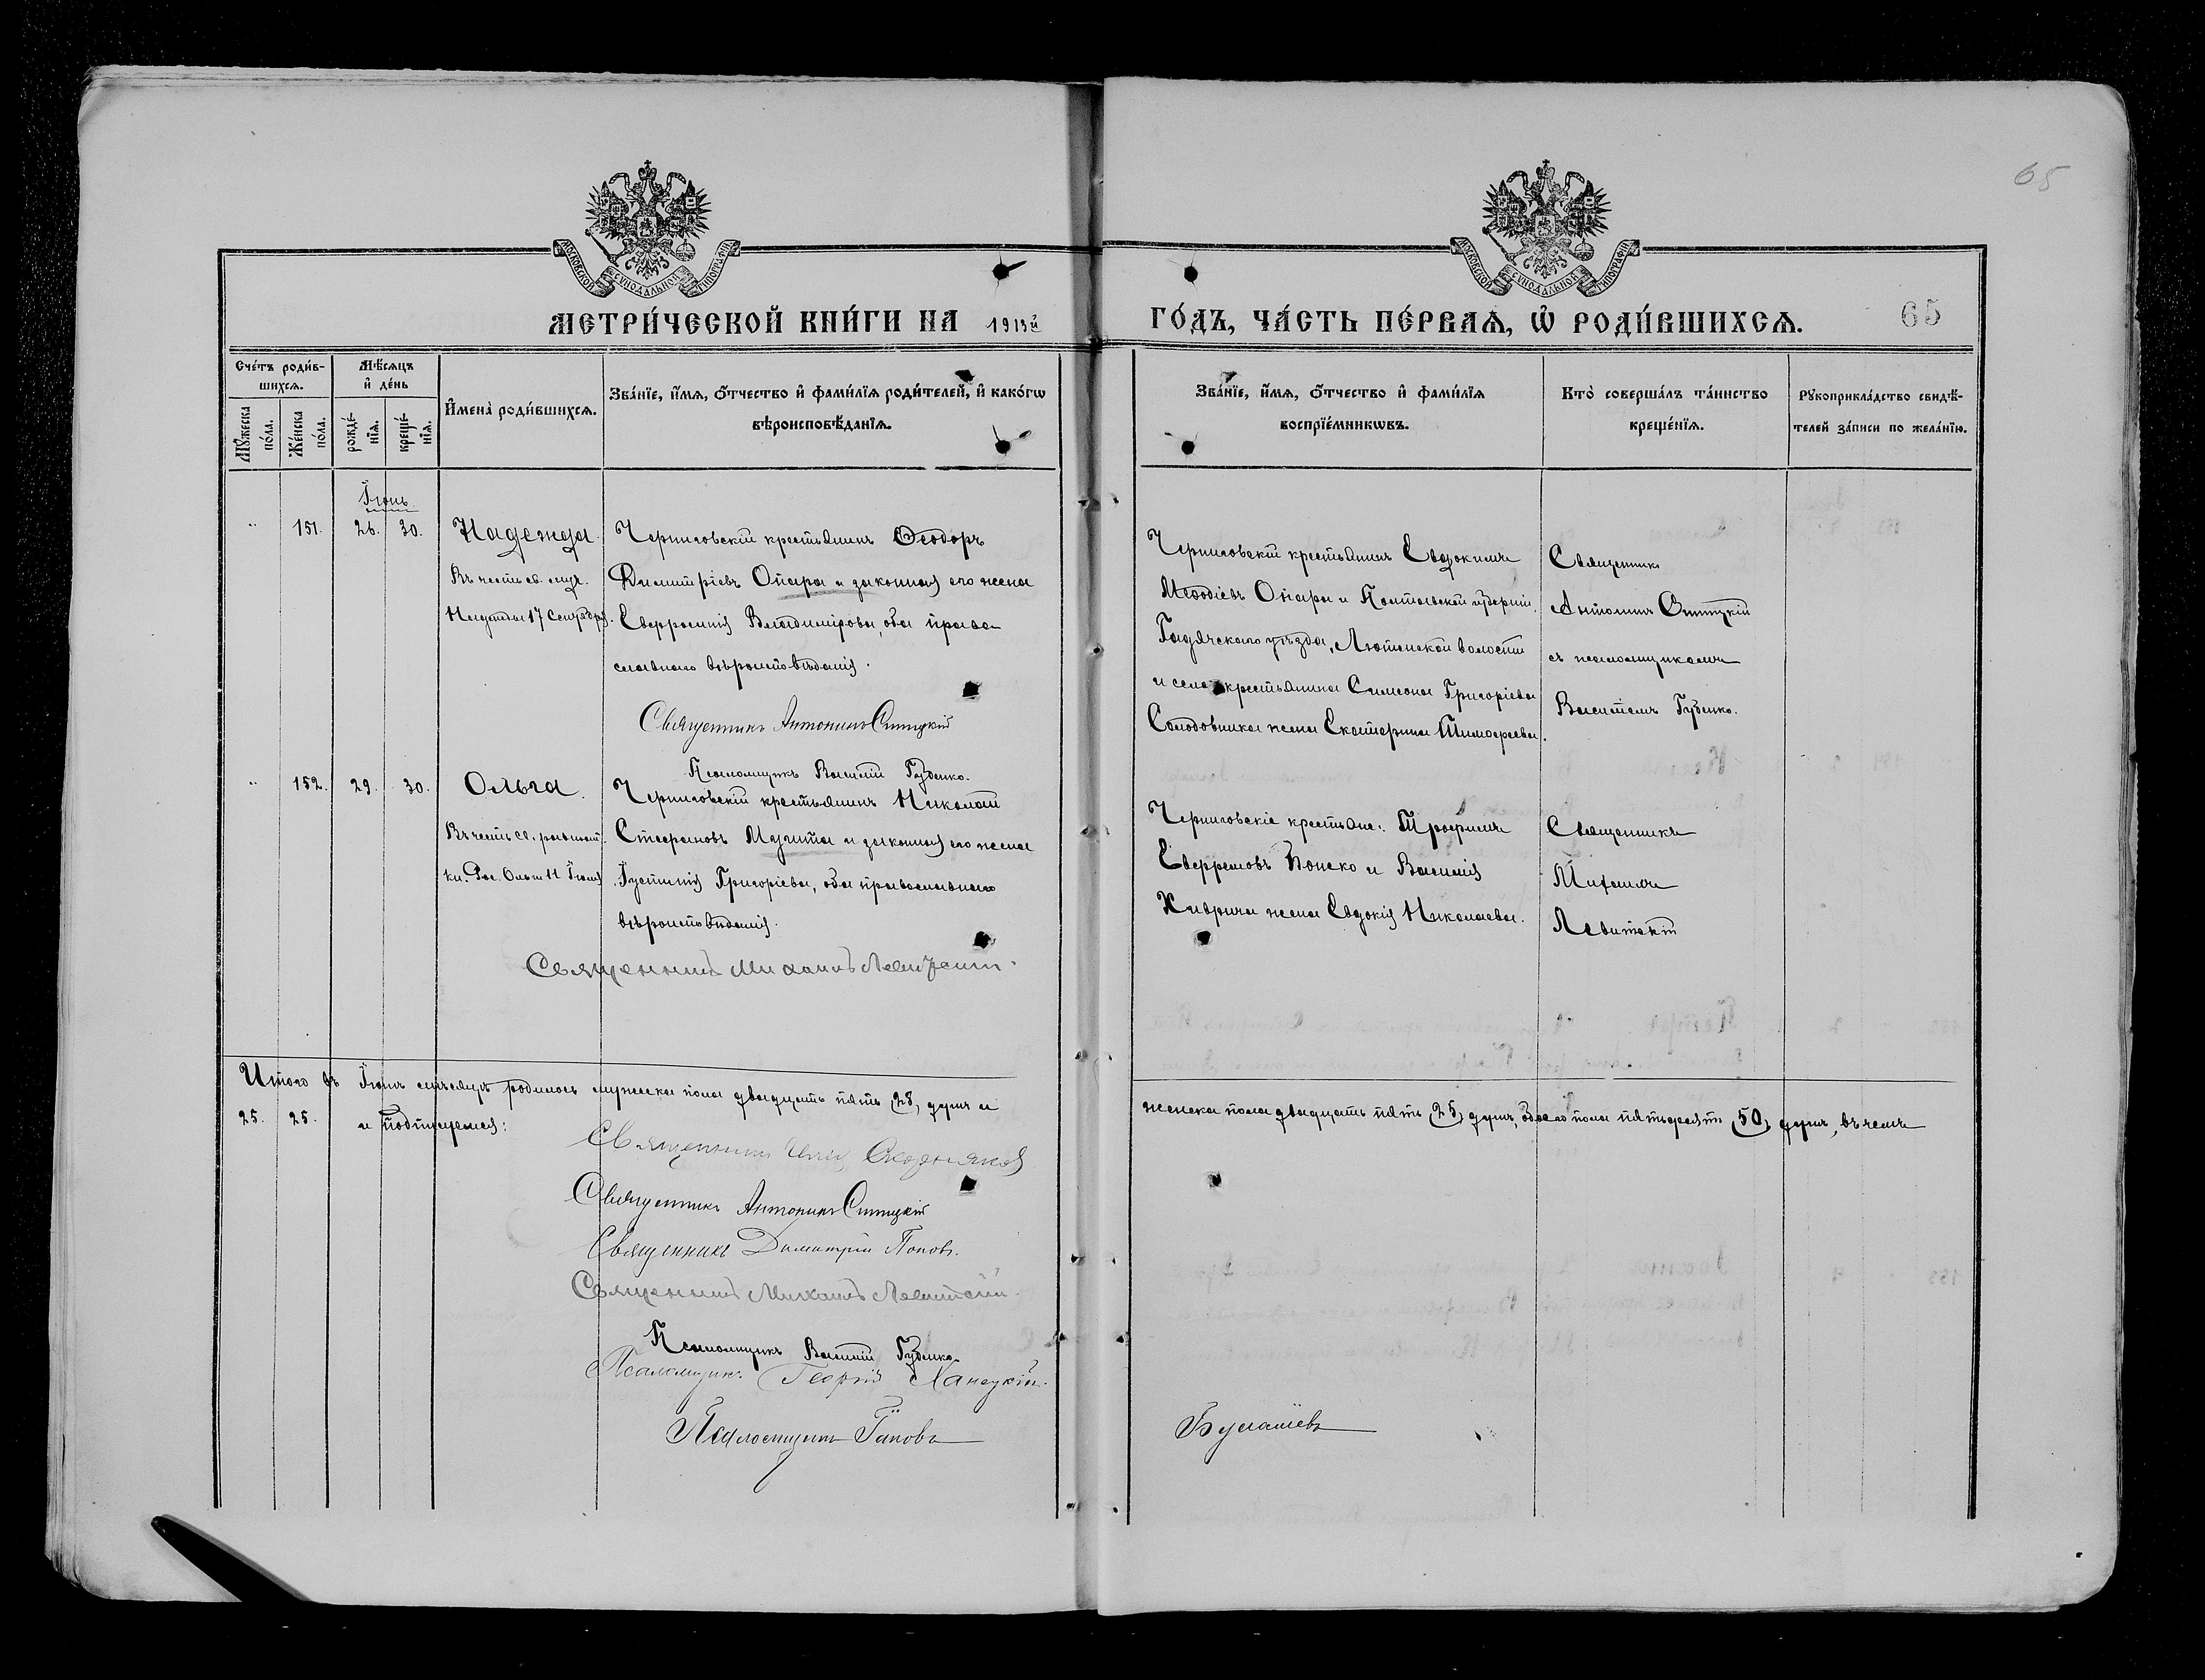 65
МОСКОВСКОЙ СУНОДАЛЬНОЙ ТИПОГРАФІИ
МОСКОВСКОЙ СУНОДАЛЬНОЙ ТИПОГРАФІИ
МЕТРИ́ЧЕСКОЙ КНИ́ГИ НА 1913й ГО́ДЪ, ЧА́СТЬ ПЕ́РВАѦ, Ѽ РОДИ́ВШИХСѦ. 65
Сче́тъ роди́в-
шихсѧ.
Мꙋжеска по́ла.
Же́нска по́ла.
Мѣ́сяцъ
и҆ де́нь
рожде́-
нїѧ.
креще́-
нїѧ.
И҆мена̀ роди́вшихсѧ.
Зва́нїе, и҆́мѧ, ѻ҆́тчество и҆ фами́лїѧ роди́телей, и҆ како́гѡ
вѣроисповѣ́данїѧ.
Зва́нїе, и҆́мѧ, ѻ҆́тчество и҆ фами́лїѧ
воспрїе́мникѡвъ.
Кто̀ соверша́лъ та́инство
креще́нїѧ.
Рꙋкоприкла́дство свидѣ́-
телей за́писи по жела́нїю.
Іюнь
" 151. 26. 30. Надежда.
Въ честь св. муч.
Надежды 17 Сентября.
Черниговскій крестьянинъ Ѳеодоръ
Димитріевъ Опара и законная его жена
Евфросинія Владимірова, оба право-
славнаго вѣроисповѣданія.
Священникъ Антонинъ Синицкій
Псаломщикъ Василій Губенко.
Черниговскій крестьянинъ Евдокимъ
Меѳодіевъ Опара и Полтавской губерніи,
Гадячскаго уѣзда, Лютенской волости
и села крестьянина Симеона Григоріева
Солодовника жена Екатерина Тимофеева.
Священникъ
Антонинъ Синицкій
съ псаломщикомъ
Василіемъ Губенко.
" 152. 29. 30. Ольга.
Въ честь св. равноап.
кн. Рос. Ольги 11 Іюля
Черниговскій крестьянинъ Николай
Стефановъ Мачита и законная его жена
Іустинія Григоріева, оба православнаго
вѣроисповѣданія.
Священникъ Михаилъ Левитскій.
Черниговскіе крестьяне: Трофимъ
Евфремовъ Конско и Василія
жена Евдокія Николаева.
Священникъ
Михаилъ
Левитскій
Итого въ Іюнѣ мѣсяцѣ родилось мужеска пола двадцать пять (25) душъ и женска пола двадцать пять (25) душъ, обоего пола пятьдесятъ (50) душъ, въ чемъ
25. 25. и подпишемся:
Священникъ Илія Скорняковъ
Священникъ Антонинъ Синицкій
Священникъ Димитрій Поповъ.
Священникъ Михаилъ Левитскій.
Псаломщикъ Василій Губенко
Псаломщикъ Георгій Ханецкій.
Псаломщикъ Гаповъ